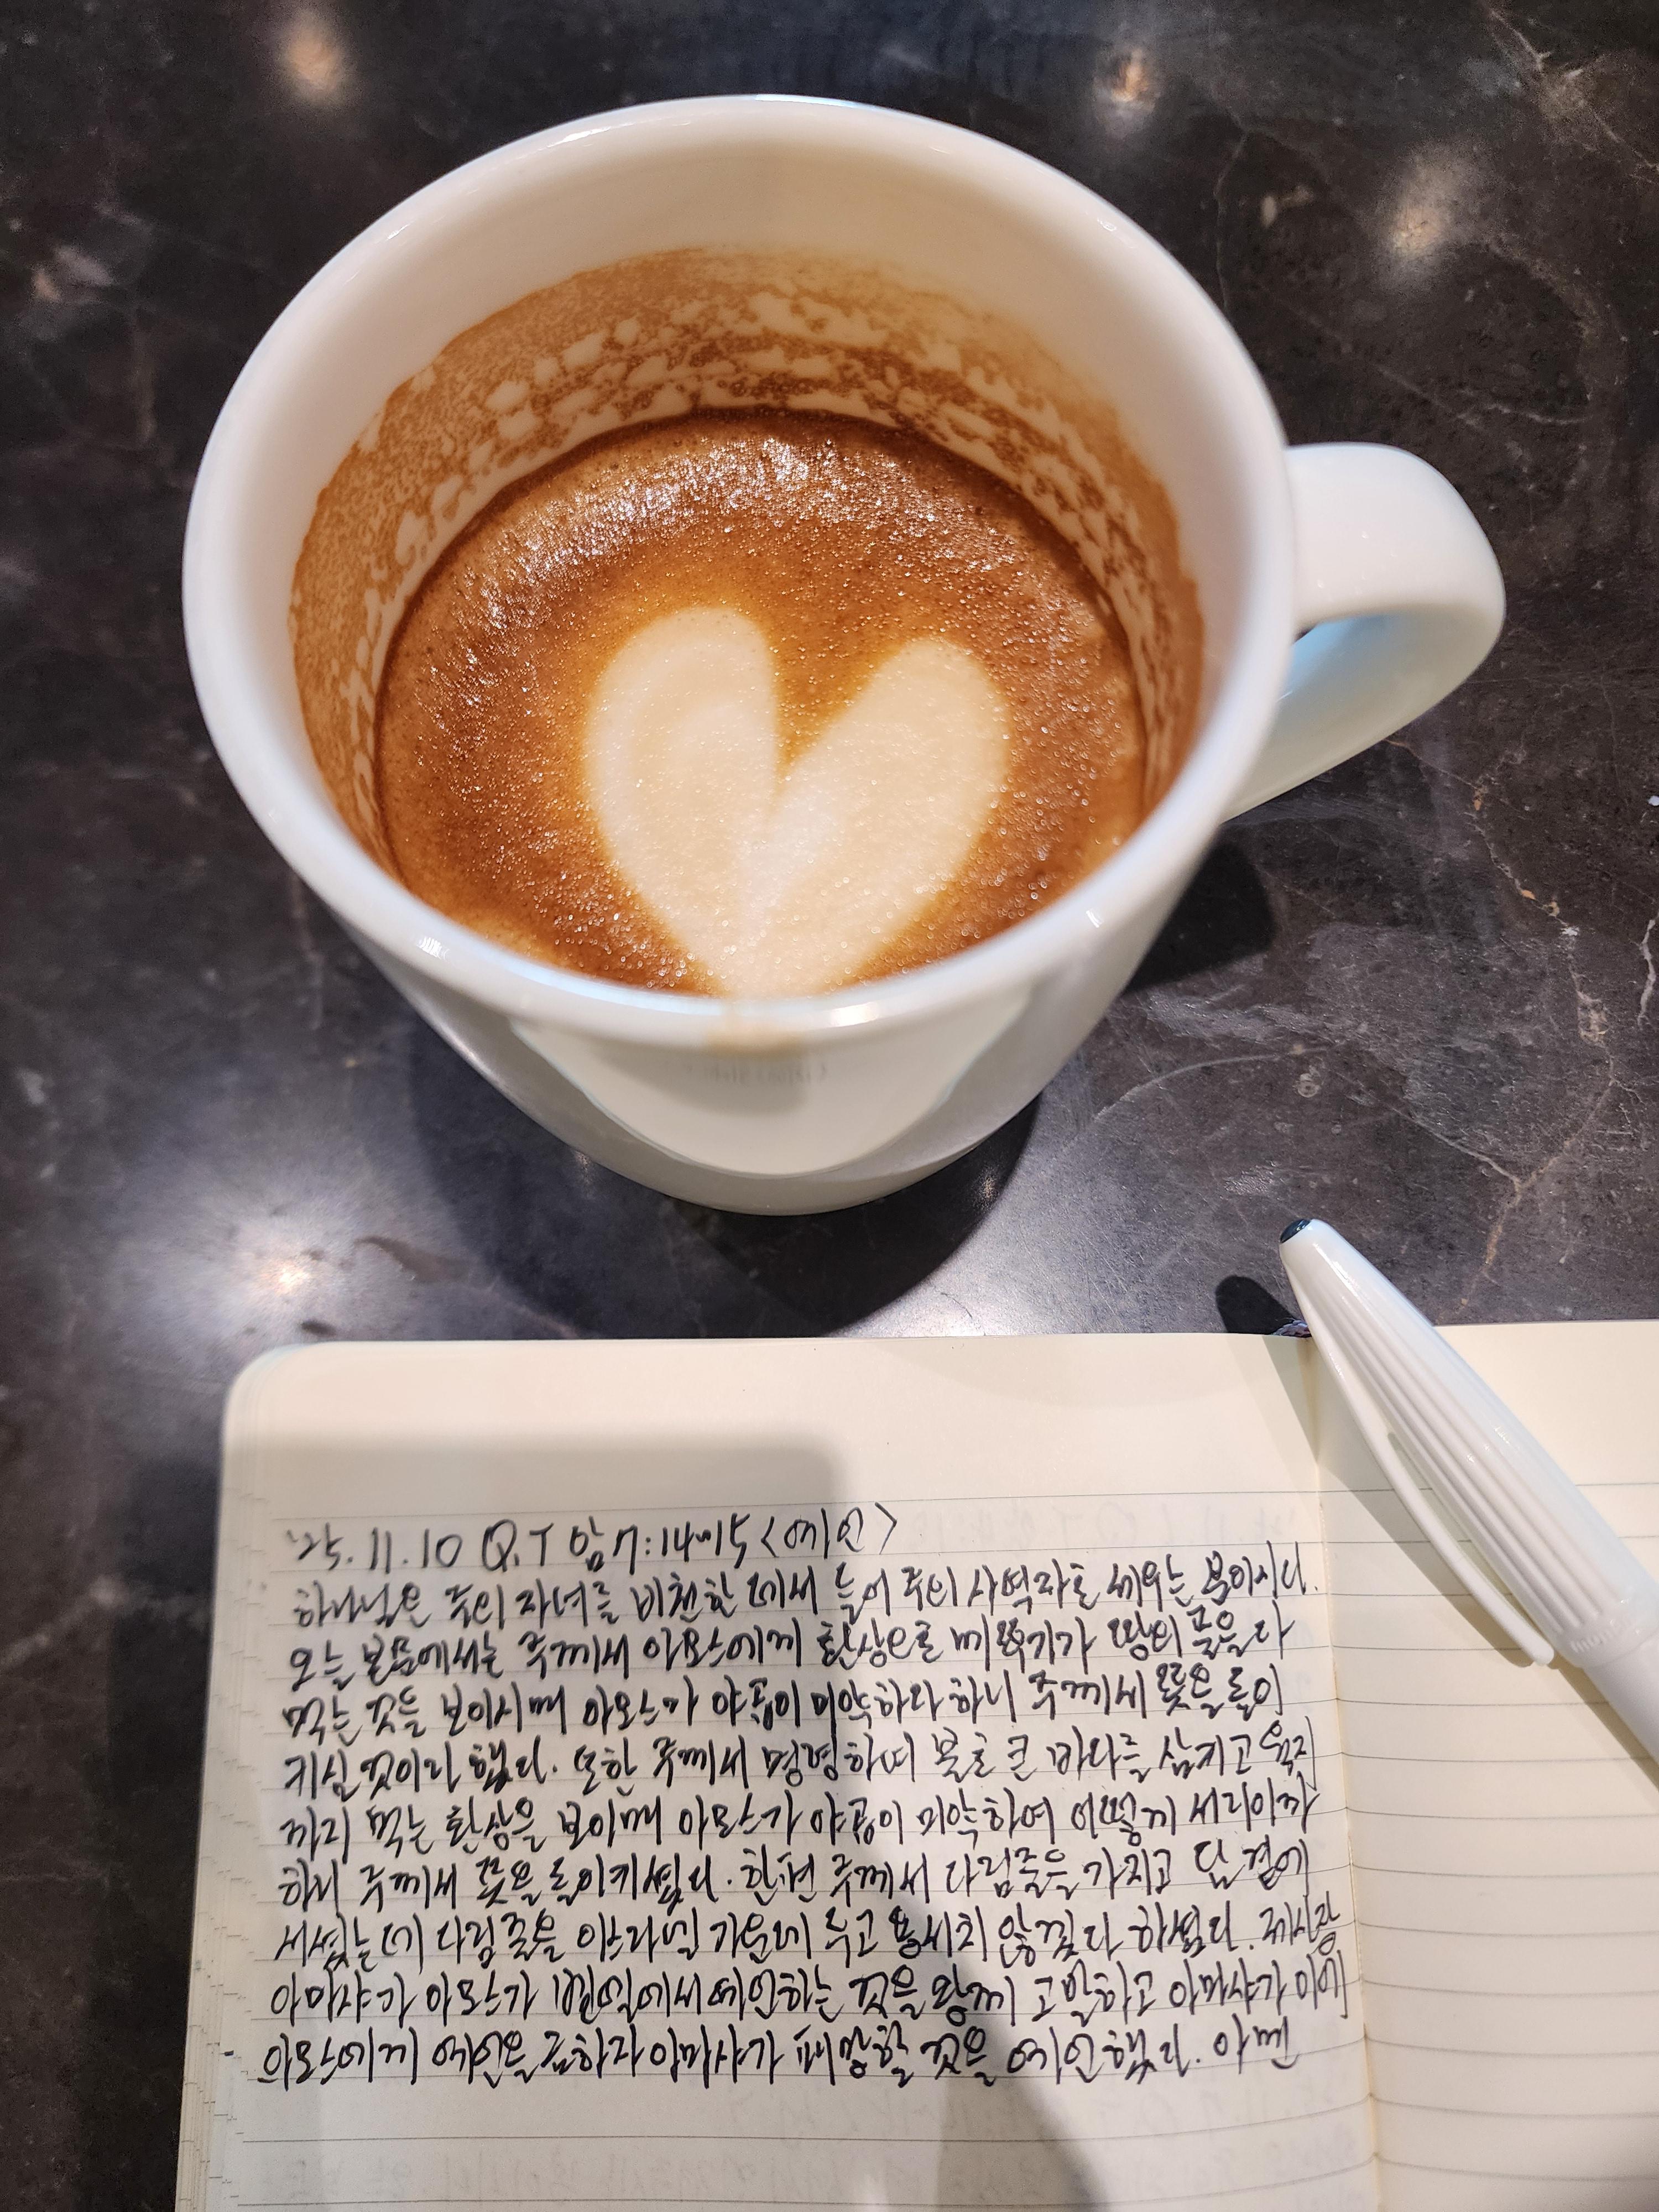 '25.11.10 Q.T 암7:14~15 <예언>
하나님은 주의 자녀를 비천한 데서 들어 주의 사역자로 세우는 분이시다.
오늘 본문에서는 주께서 아모스에게 환상으로 메뚜기가 땅의 풀을 다
먹는 것을 보이시매 아모스가 야곱이 미약하다 하니 주께서 뜻을 돌이
키실 것이라 했다. 또한 주께서 명령하여 불로 큰 바다를 삼키고 육지
까지 먹는 환상을 보이매 아모스가 야곱이 미약하여 어떻게 서리이까
하니 주께서 뜻을 돌이키셨다. 한편 주께서 다림줄을 가지고 담 곁에
서셨는데 다림줄을 이스라엘 가운데 두고 용서치 않겠다 하셨다. 제사장
아마샤가 아모스가 벧엘에서 예언하는 것을 왕께 고발하고 아마샤가 이에
아모스에게 예언을 금하자 아마샤가 패망할 것을 예언했다. 아멘